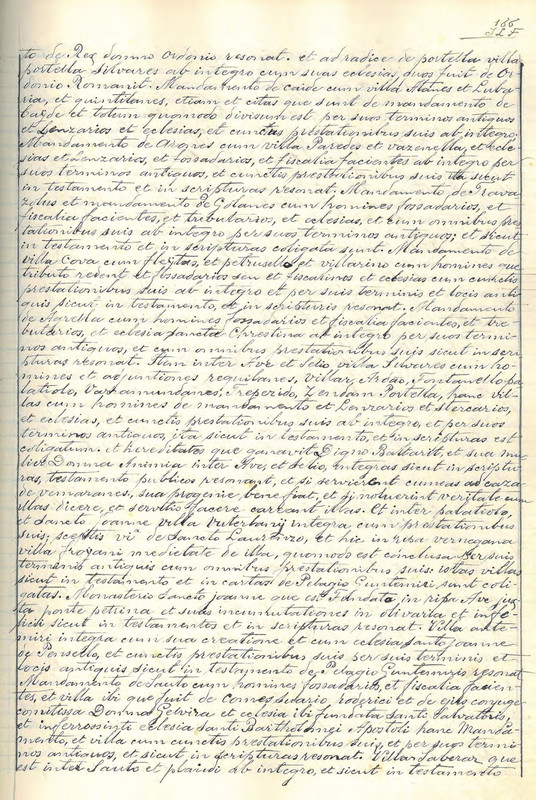 186
J L F
to de Rex domno Ordonio resonat. et ad radice de portella villa
portella Silvares ab integro cum suas eclesias, quos fuit de Or
donio Romaniz. Mandamento de Caide cum villa
ria, et quintilanes, etiam et citas que sunt de mandamento de
et totum quomodo divisum est per suos terminos antiquos
et Lenzarios et eclesias, et cunctis prestationibus suis ab integro,
Mandamento de Arones cum villa Paredes et vazenella, et ecle
sias et Lenzarios, et fossadarios, et fiscalia facientes ab integro per
suos terminos antiquos, et cunctis prestationibus suis ita sicut
in testamento et in scripturas resonat. Mandamento de Trava
zolus et mandamento de Golanes cum homines fossadarios, et
fiscalia facientes, et tributarios, et eclesias, et cum omnibus pres
tationibus suis ab integro per suos terminos antiquos; et sicut
in testamento et in scripturas coligata sunt. Mandamento de
villa Cova cum et petrusello et villarino cum homines que
tributo redent et fossadarios seu et fiscalinos et eclesias cum cunctis
prestationibus suis ab integro et per suis terminis et locis anti
quis sicut in testamento, et in scripturis resonat. Mandamento
de Agrella cum homines fossadarios et fiscalia facientes, et tre
butarios, et eclesia sancta Christina ab integro per suos termi
nos antiquos, et cum omnibus prestationibus suis sicut in scri
pturas resonat. Item inter Ave et Selio, villa Silvares cum ho
mines et adjuntiones requilanes, Villar, Fontanello pa
latiolo, Vaz amundanes, Treperido, Zendam Portella, hanc vil
las cum homines de mandamento et Lenzarios et stercarios,
et eclesias, et cunctis prestationibus suis ab integro, et per suos
terminos antiquos, ita sicut in testamento, et in scripturas est
coligatum. et hereditates que ganavit Digno Baltariz, et sua mu
lier Domna Animia inter Ave, et Selio, integras sicut in scriptu
ras, testamento publicos resonant, et si servierent cumeas ad caza
de vemaranes, sua progenie bene fiat, et si noluerint veritate cum
illas dicere, et servitio facere careant illas. Et inter palatiolo,
et Sancto Joanne villa integra cum prestationibus
suis; sceptis VIª de Sancto Laurenzo, et hic in riba vernegana
villa Froyani medietate de illa, quomodo est conclusa per suis
terminis antiquis cum omnibus prestationibus suis. istas villas
sicut in testamento et in cartas de Pelagio Guntemiri sunt coli
gatas. Monasterio Sancto Joanne que est fundata in ripa Ave jux
ta ponte petrina et suas incumutationes in olivaria et infe
sicut in testamentos et in scripturas resonat. Villa ante
miri integra cum sua creatione et cum eclesia santo Joanne
de Pensello, et cunctis prestationibus suis per suis terminis et
locis antiquis sicut in testamento de Pelagio Guntemiriz resonat
Mandamento de Sauto cum homines fossadarios, et fiscalia facien
tes, et villa ibi que fuit de Comes Suario, roderici et de ejus conjuge
comitissa Domna Gelvira et eclesia ibi fundata Santi Salvatoris,
et inferressinti eclesia Santi Bartholomei Apostoli hanc Manda
mento, et villa cum cunctis prestationibus suis, et per suos termi
nos antiquos, et sicut in scripturas resonat. Villa Taberar que
est inter Sauto et plaudi ab integro, et sicut in testamento